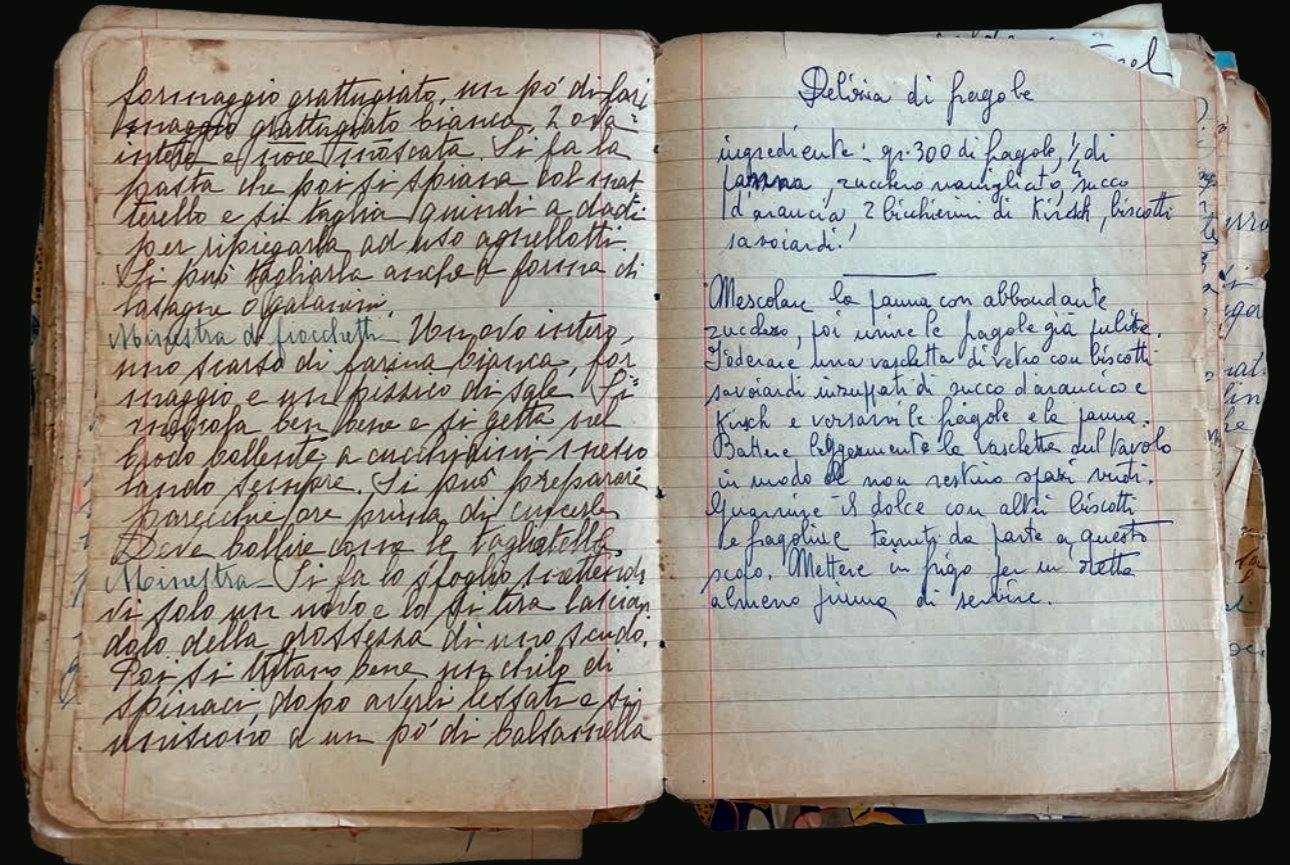 formaggio grattugiato, un pò di fari
grattugiato bianca, 2 ova
intere e noce moscata. Si fa la
pasta che poi si spiana col mat
terello e si taglia quindi a dadi
per ripiegarla ad uso agnellotti.
Si può tagliarla anche a forma di
lasagne o
Minestra di fiocchetti Un ovo intero,
uno scarso di farina bianca, for
maggio e un pizzico di sale Si
ben bene e si getta nel
brodo bollente a cucchiaini
lando sempre. Si può preparare
parecchie ore prima di cuocerla
Deve bollire come le tagliatelle.
Minestra Si fa la sfoglia mettendo
vi solo un uovo e la si tira lascian
dola della grossezza di uno scudo.
Poi si tritano bene un chilo di
spinaci, dopo averli lessati e si
uniscono a un pò di balsamella
Delizia di fragole
ingredienti: gr. 300 di fragole, di
panna, zucchero vanigliato, succo
d'arancia, 2 bicchierini di Kirsch, biscotti
savoiardi.
Mescolare la panna con abbondante
zucchero, poi unire le fragole già pulite.
Foderare una vaschetta di vetro con biscotti
savoiardi inzuppati di succo d'arancio e
Kirsch e versarvi le fragole e la panna.
Battere leggermente la vaschetta sul tavolo
in modo che non restino spazi vuoti.
Guarnire il dolce con altri biscotti
e fragoline tenuti da parte a questo
scopo. Mettere in frigo per un'oretta
almeno prima di servire.